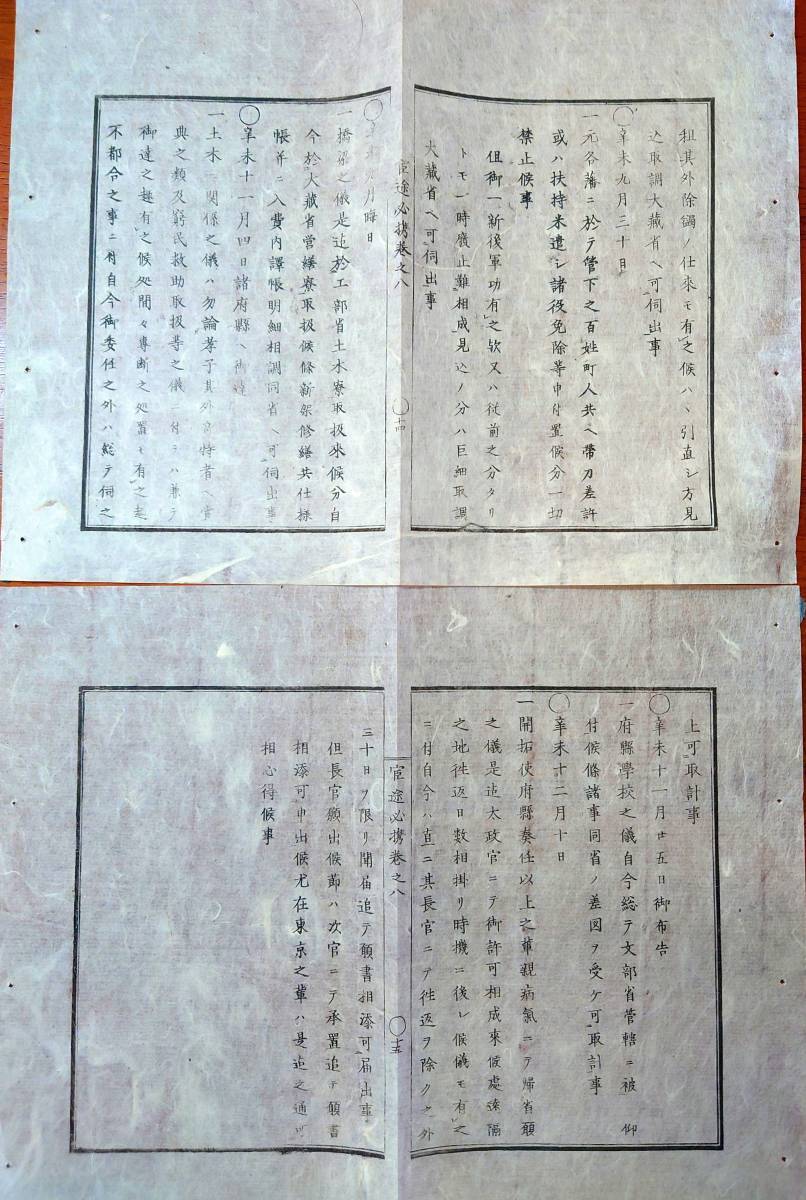 租其外除鐲ノ仕來モ有之候ハヽ引直シ方見
込取調大藏省ヘ可伺出事
〇辛未九月三十日
一元各藩ニ於テ管下之百姓町人共ヘ帶刀差許
或ハ扶持米遣シ諸役免除等申付置候分一切
禁止候事
但御一新後軍功有之欤又ハ従前之分タリ
トモ一時廢止難相成見込ノ分ハ巨細取調
大藏省ヘ可伺出事
宦途必携巻之八
〇十四
〇辛未 月晦日
一橋梁之儀是迠於工部省土木寮取扱來候分自
今於大藏省營繕寮取扱候條新架修繕共仕様
帳并ニ入費内譯帳明細相調同省ヘ可伺出事
〇辛未十一月四日諸府縣ヘ御達
一土木ニ関係之儀ハ勿論孝子其外竒特者ヘ賞
典之類及窮民救助取扱等之儀ニ付テハ兼テ
御達之趣有之候処間々專断之処置モ有之趣
不都合之事ニ付自今御委任之外ハ総テ伺之
上可取計事
〇辛未十一月廿五日御布告
一府縣學校之儀自今総テ文部省管轄ニ被 仰
付候條諸事同省ノ差図ヲ受ケ可取計事
〇辛未十二月十日
一開拓使府縣奏任以上之輩親病氣ニテ帰省願
之儀是迠太政官ニテ御許可相成來候處遠隔
之地徃返日数相掛リ時機ニ後レ候儀モ有之
ニ付自今ハ直ニ其長官ニテ徃返ヲ除クノ外
宦途必携巻之八
〇十五
三十日ヲ限リ聞届追テ願書相添可届出事
但長官願出候節ハ次官ニテ承置追テ願書
相添可申出候尤在東京之輩ハ是迠之通可
相心得候事